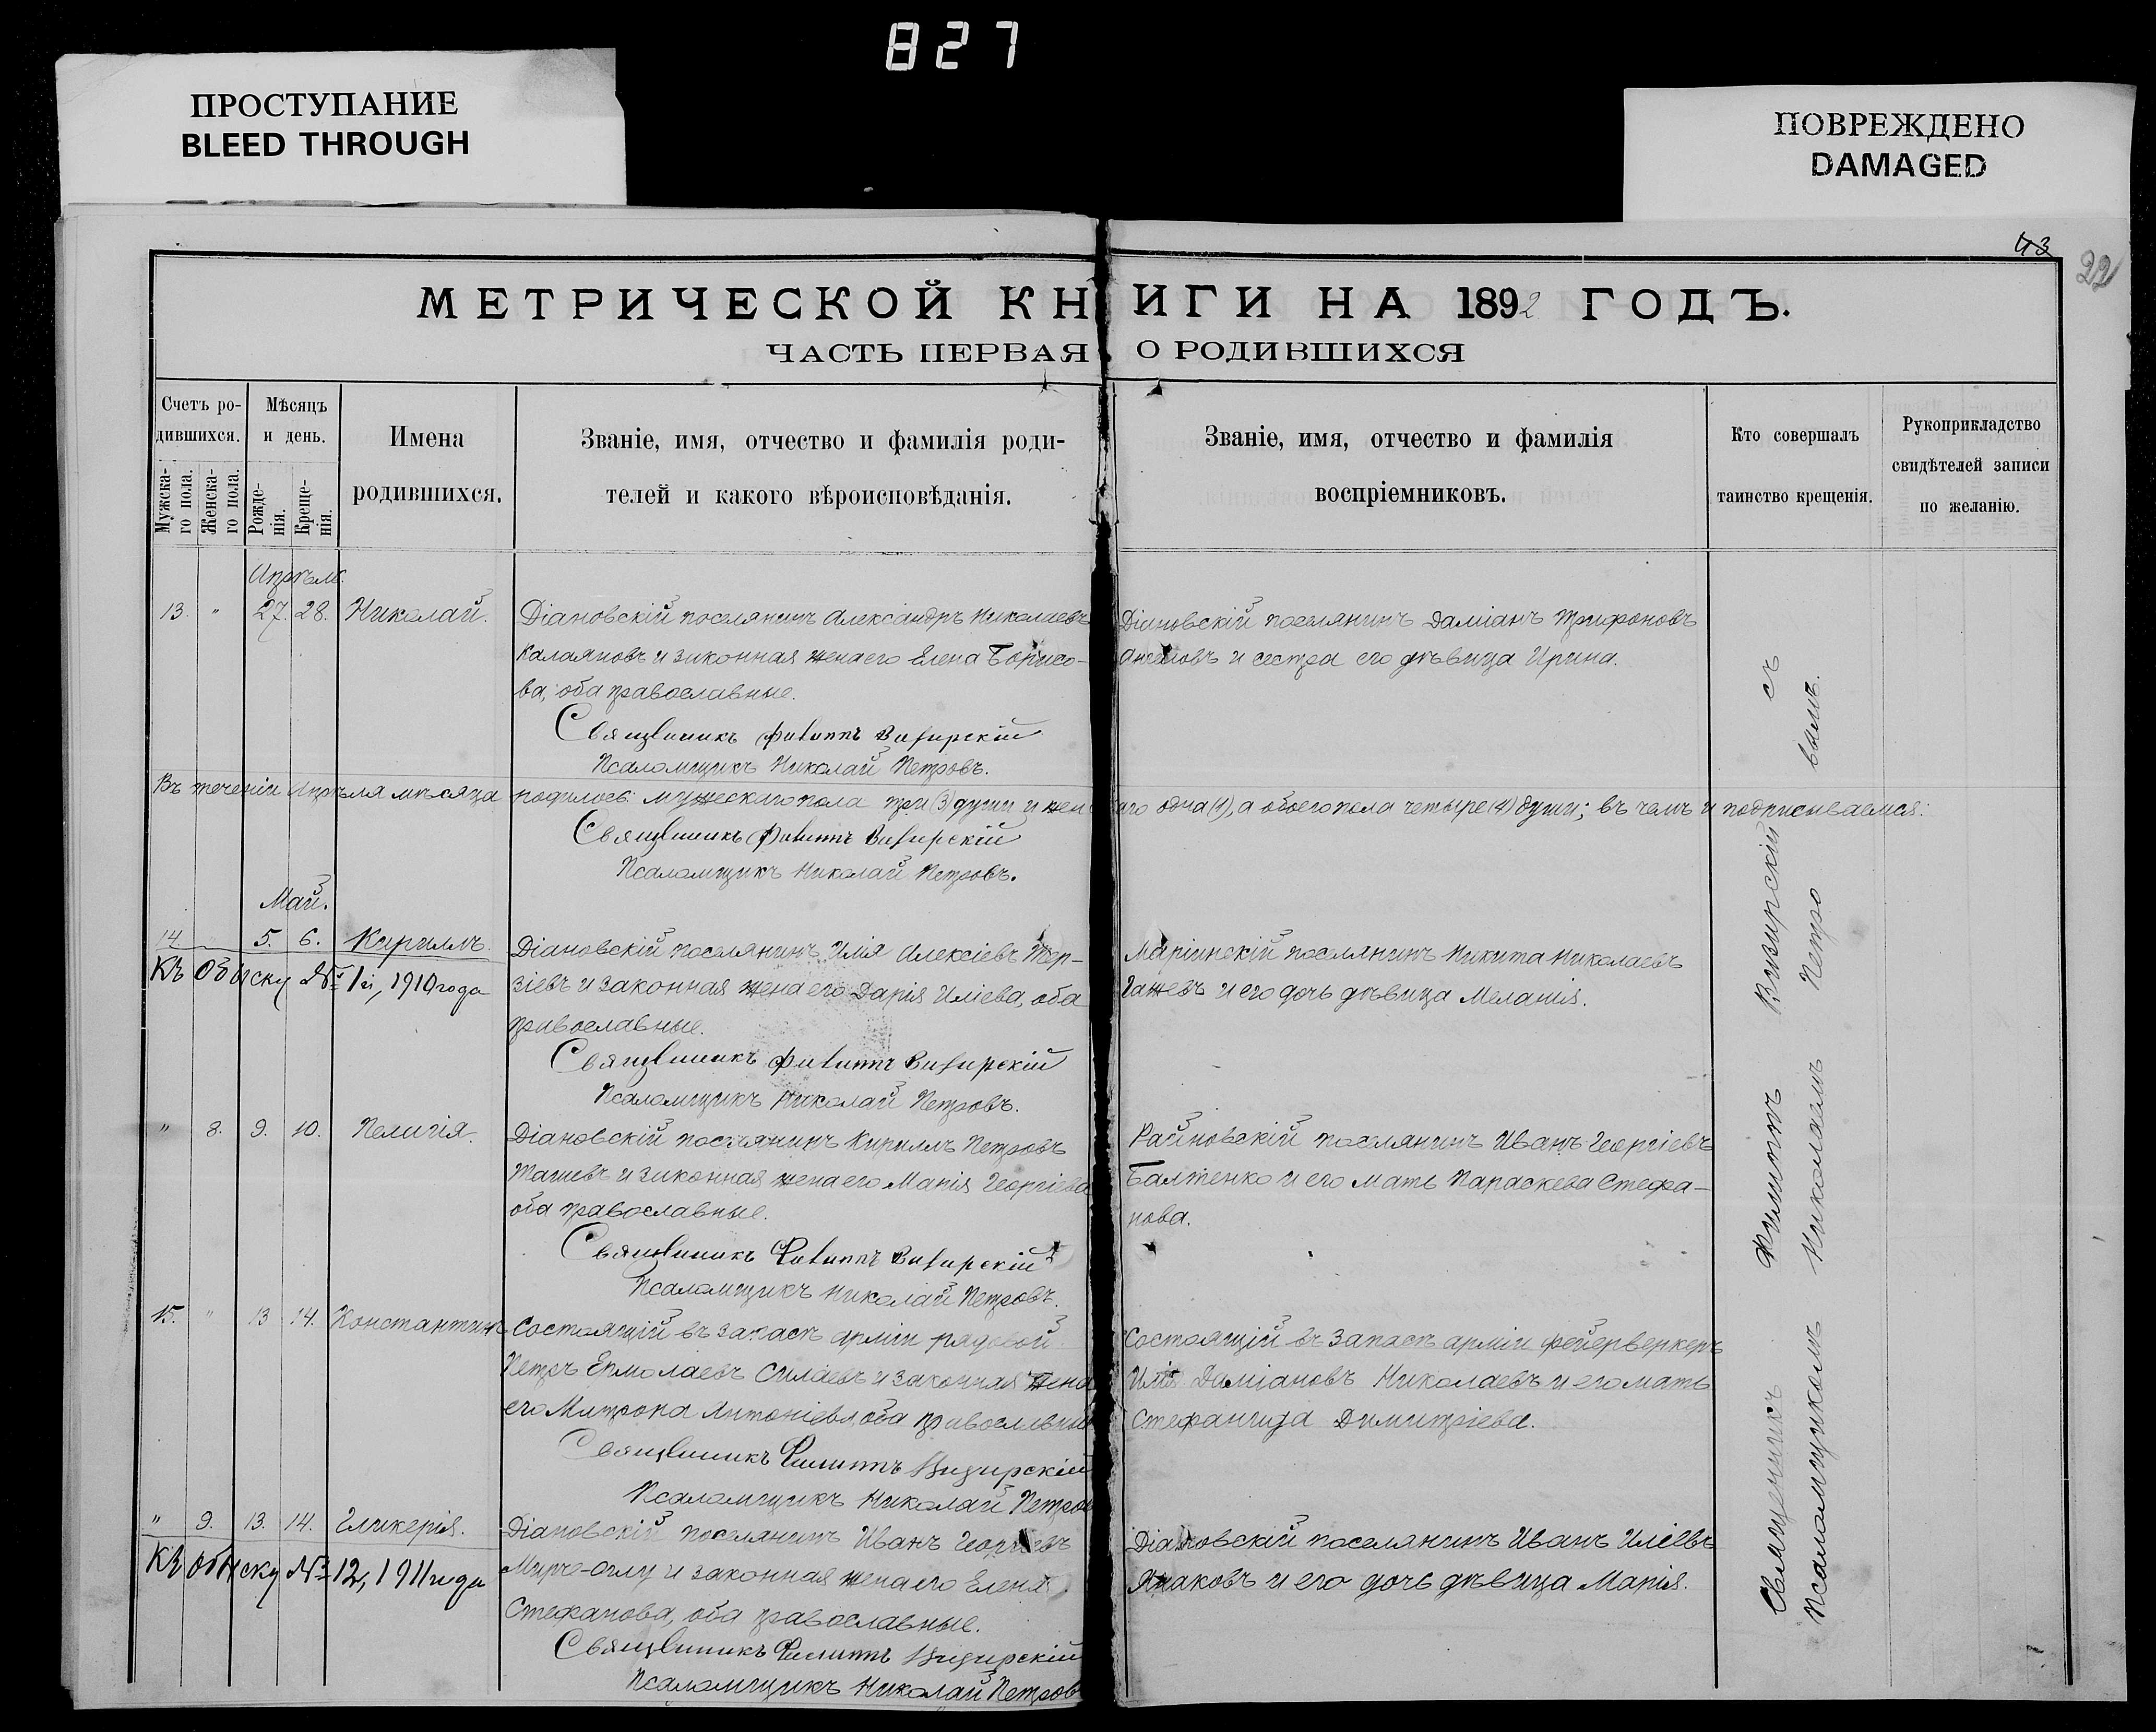 827
ПРОСТУПАНИЕ
BLEED THROUGH
ПОВРЕЖДЕНО
DAMAGED
43
22
МЕТРИЧЕСКОЙ КНИГИ НА 1892 ГОДЪ.
ЧАСТЬ ПЕРВАЯ О РОДИВШИХСЯ
Счетъ ро-
дившихся.
Мужска-
го пола.
Женска-
го пола.
Мѣсяцъ
и день.
Рожде-
нія.
Креще-
нія.
Имена
родившихся.
Званіе, имя, отчество и фамилія роди-
телей и какого вѣроисповѣданія.
Званіе, имя, отчество и фамилія
воспріемниковъ.
Кто совершалъ
таинство крещенія.
Рукоприкладство
свидѣтелей записи
по желанію.
Апрѣль.
13. " 27. 28. Николай.
Діановскій поселянинъ Александръ Николаевъ
Калаяновъ и законная жена его Елена Борисо-
ва, оба православные.
Священникъ Филиппъ Визирскій
Псаломщикъ Николай Петровъ.
Діановскій поселянинъ Даміанъ Трифоновъ
и сестра его дѣвица Ирина.
Въ теченіи Апрѣля мѣсяца родилось: мужескаго пола три (3) души и жен каго одна (1), а обоего пола четыре (4) души; въ чемъ и подписываемся:
Священникъ Филиппъ Визирскій
Псаломщикъ Николай Петровъ.
Май.
14. 5. 6. Кириллъ.
Къ обыску № 1й, 1910 года
Діановскій поселянинъ Илія Алексіевъ Тер-
зіевъ и законная жена его Дарія Иліева, оба
православные.
Священникъ Филиппъ Визирскій
Псаломщикъ Николай Петровъ.
Маріинскій поселянинъ Никита Николаевъ
Гажевъ и его дочь дѣвица Меланія.
" 8. 9. 10. Пелагія.
Діановскій поселянинъ Кириллъ Петровъ
и законная жена его Марія Георгіева
оба православные.
Священникъ Филиппъ Визирскій
Псаломщикъ Николай Петровъ.
Райновскій поселянинъ Иванъ Георгіевъ
Балтенко и его мать Параскева Стефа-
нова.
15. " 13 14. Константинъ
Состоящій въ запасѣ арміи рядовой
Петръ Ермолаевъ Силаевъ и законная жена
его Матрона Антоніева, оба православные
Священникъ Филиппъ Визирскій
Псаломщикъ Николай Петров
Состоящій въ запасѣ арміи фейерверкеръ
Илія Даміановъ Николаевъ и его мать
Стефанида Димитріева.
" 9. 13. 14. Гликерія.
Къ обыску № 12, 1911 года
Діановскій поселянинъ Иванъ Георгіевъ
Мирче-Оглу и законная жена его Елена
Стефанова, оба православные.
Священникъ Филиппъ Визирскій
Псаломщикъ Николай Петров
Діановскій поселянинъ Иванъ Иліевъ
и его дочь дѣвица Марія.
Священникъ Филиппъ Визирскій съ
Псаломщикомъ Николаемъ Петро вымъ.